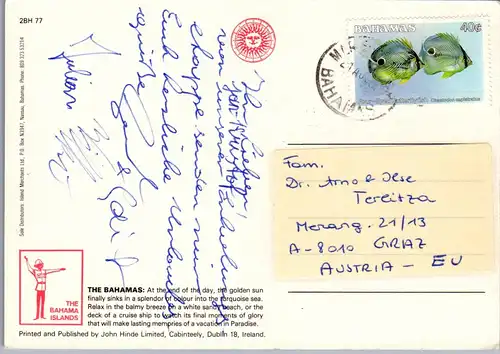 2BH 77
BAHAMAS 40c
BAHAMAS
Sole Distributors: Island Merchants Ltd., P.O. Box N3947, Nassau, Bahamas. Phone: 809-323-5
Ihr Lieben!
von unserer Erholungs
etappe senden wir
Euch herzliche Urlaubs
grüße
& Edith
Julian
Fam.
Dr. Arno & Ilse
Terlitza
Merang. 21/13
A-8010 GRAZ
AUSTRIA - EU
THE
BAHAMA
ISLANDS
THE BAHAMAS: At the end of the day, the golden sun
finally sinks in a splendor of colour into the turquoise sea.
Relax in the balmy breeze on a white sandy beach, or the
deck of a cruise ship to watch its final moments of glory
that will make lasting memories of a vacation in Paradise.
Printed and Published by John Hinde Limited, Cabinteely, Dublin 18, Ireland.